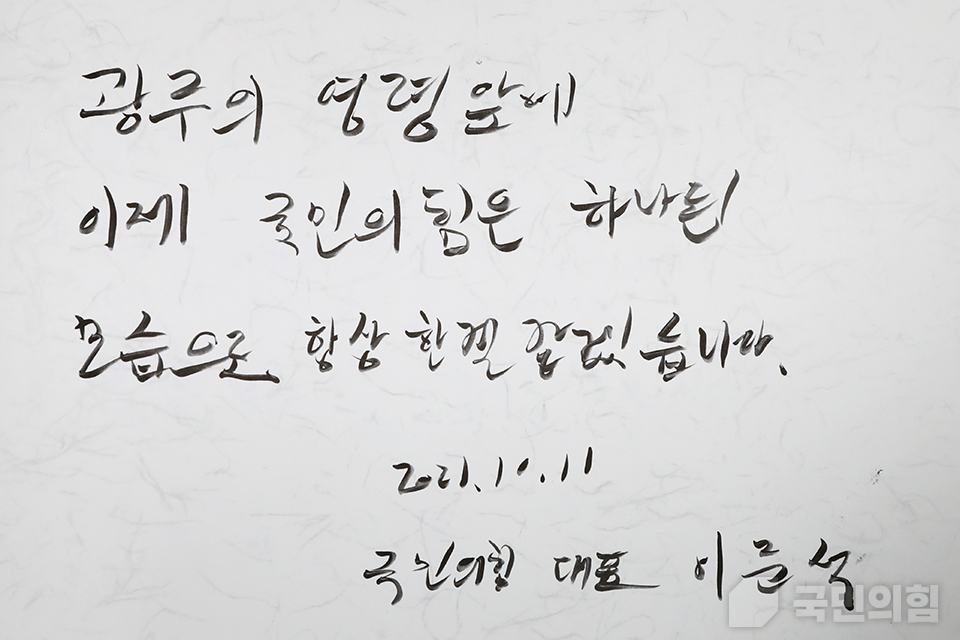 광주의 영령앞에
이제 국민의힘은 하나된
모습으로 항상 한결 같겠습니다.
2021.10.11
국민의힘 대표 이준석
국민의힘